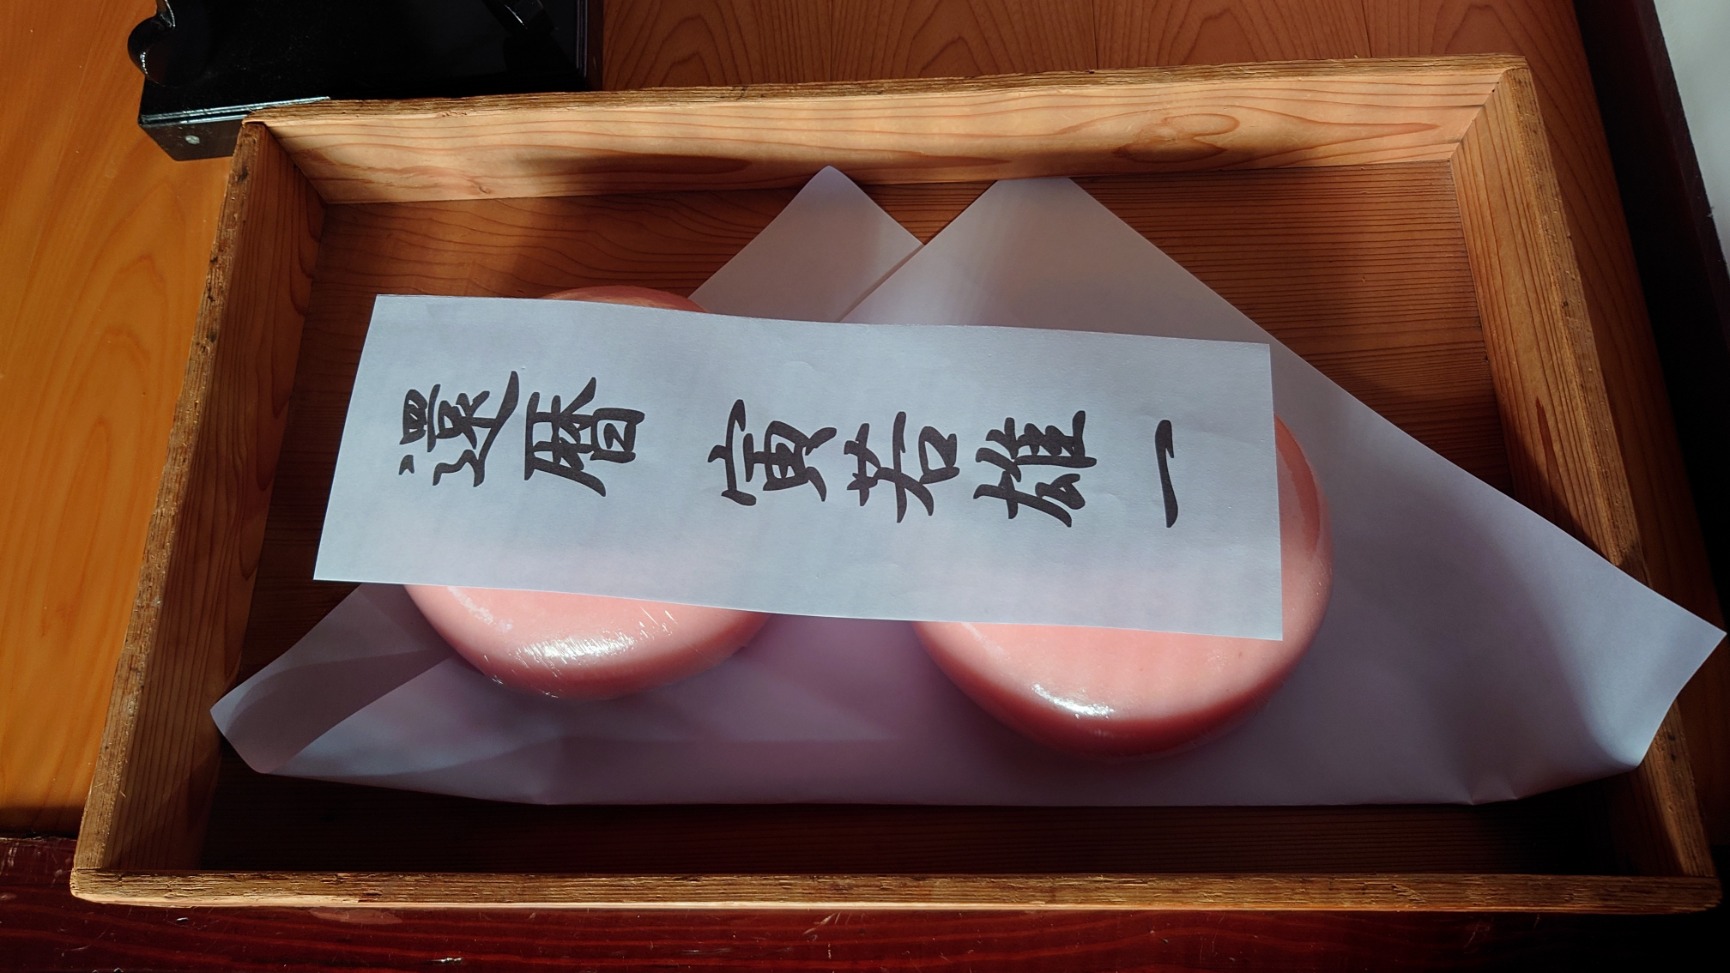 還暦 寅若雄一